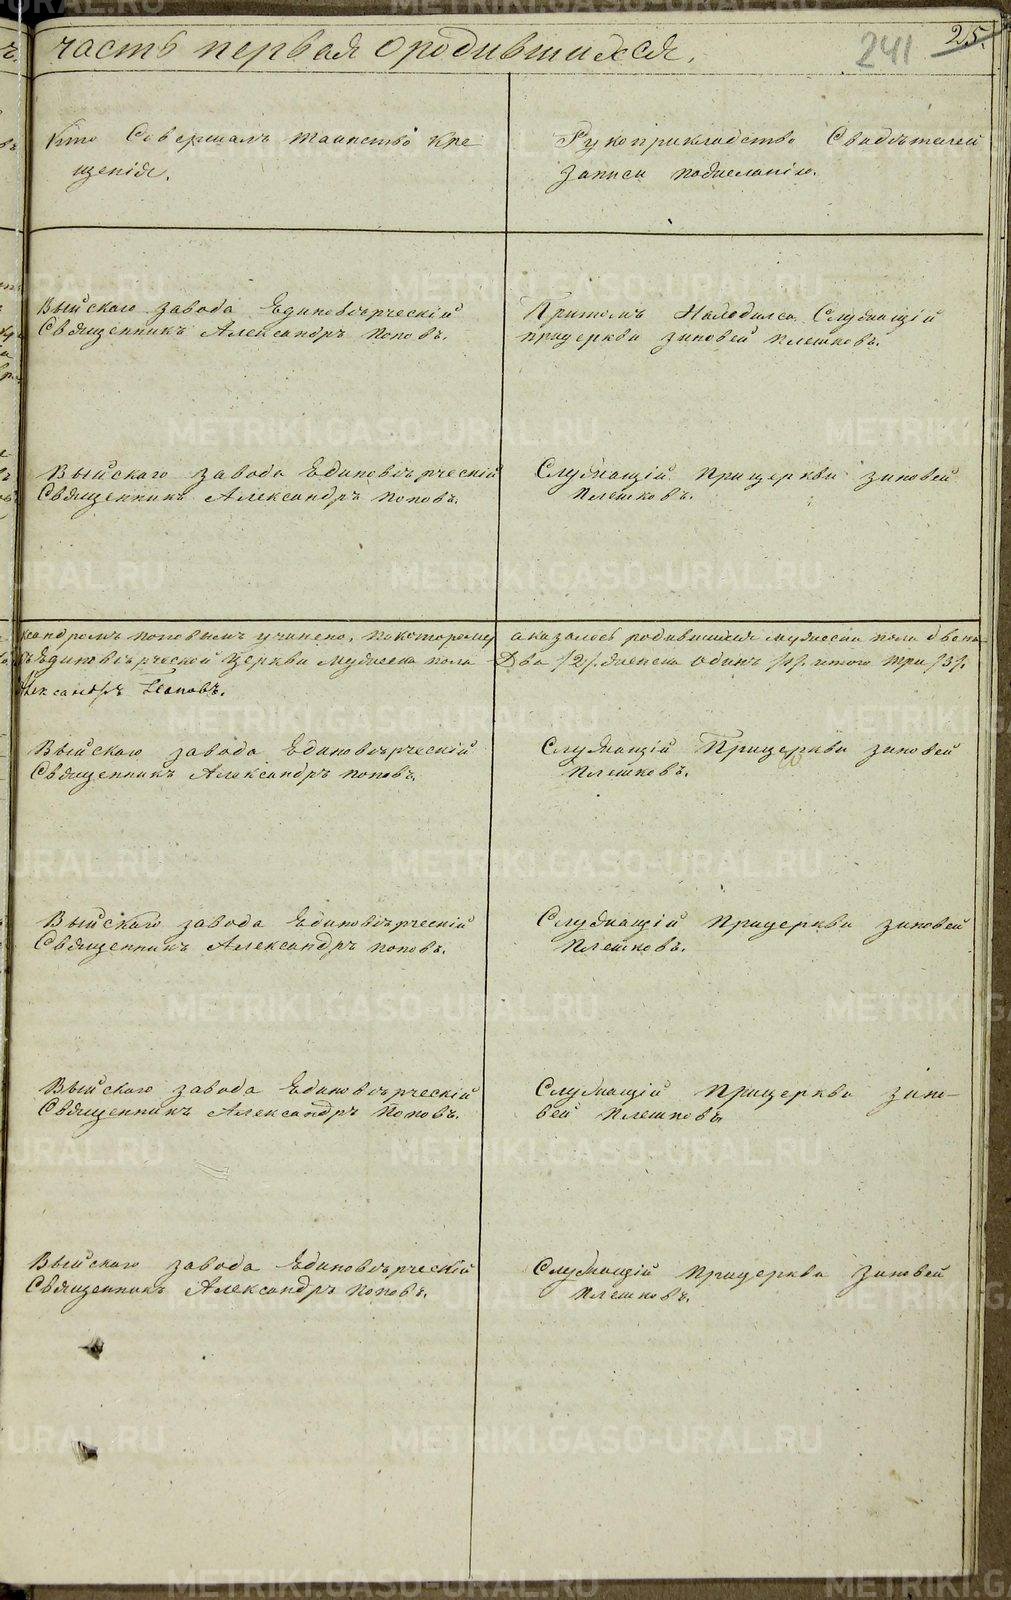 часть первая о родившихся.
241
25.
Кто Совершалъ таинство кре
щенія.
Рукоприкладство Свидѣтелей
записи по желанію.
Выйскаго завода Единовѣрческій
Священникъ Александръ Поповъ.
Притомъ Находился Служащій
прицеркви зиновей Плешковъ.
Выйскаго завода Единовѣрческій
Священникъ Александръ Поповъ.
Служащій прицеркви зиновей
Плешковъ.
ксандромъ Поповымъ учинено, покоторому
оказалось родившихся мужеска пола двена
Единовѣрческой Церкви мужеска пола
Два /2/. женска Одинъ /1/. итого три /3/.
Александръ Поповъ.
Выйскаго завода Единовѣрческій
Священникъ Александръ Поповъ.
Служащій Прицеркви зиновей
Плешковъ.
Выйскаго завода Единовѣрческій
Священникъ Александръ Поповъ.
Служащій Прицеркви зиновей
Плешковъ.
Выйскаго завода Единовѣрческій
Священникъ Александръ Поповъ.
Служащій Прицеркви зино-
вей Плешковъ
Выйскаго завода Единовѣрческій
Священникъ Александръ Поповъ.
Служащій прицеркви зиновей
Плешковъ.
METRIKI.GASO-URAL.RU